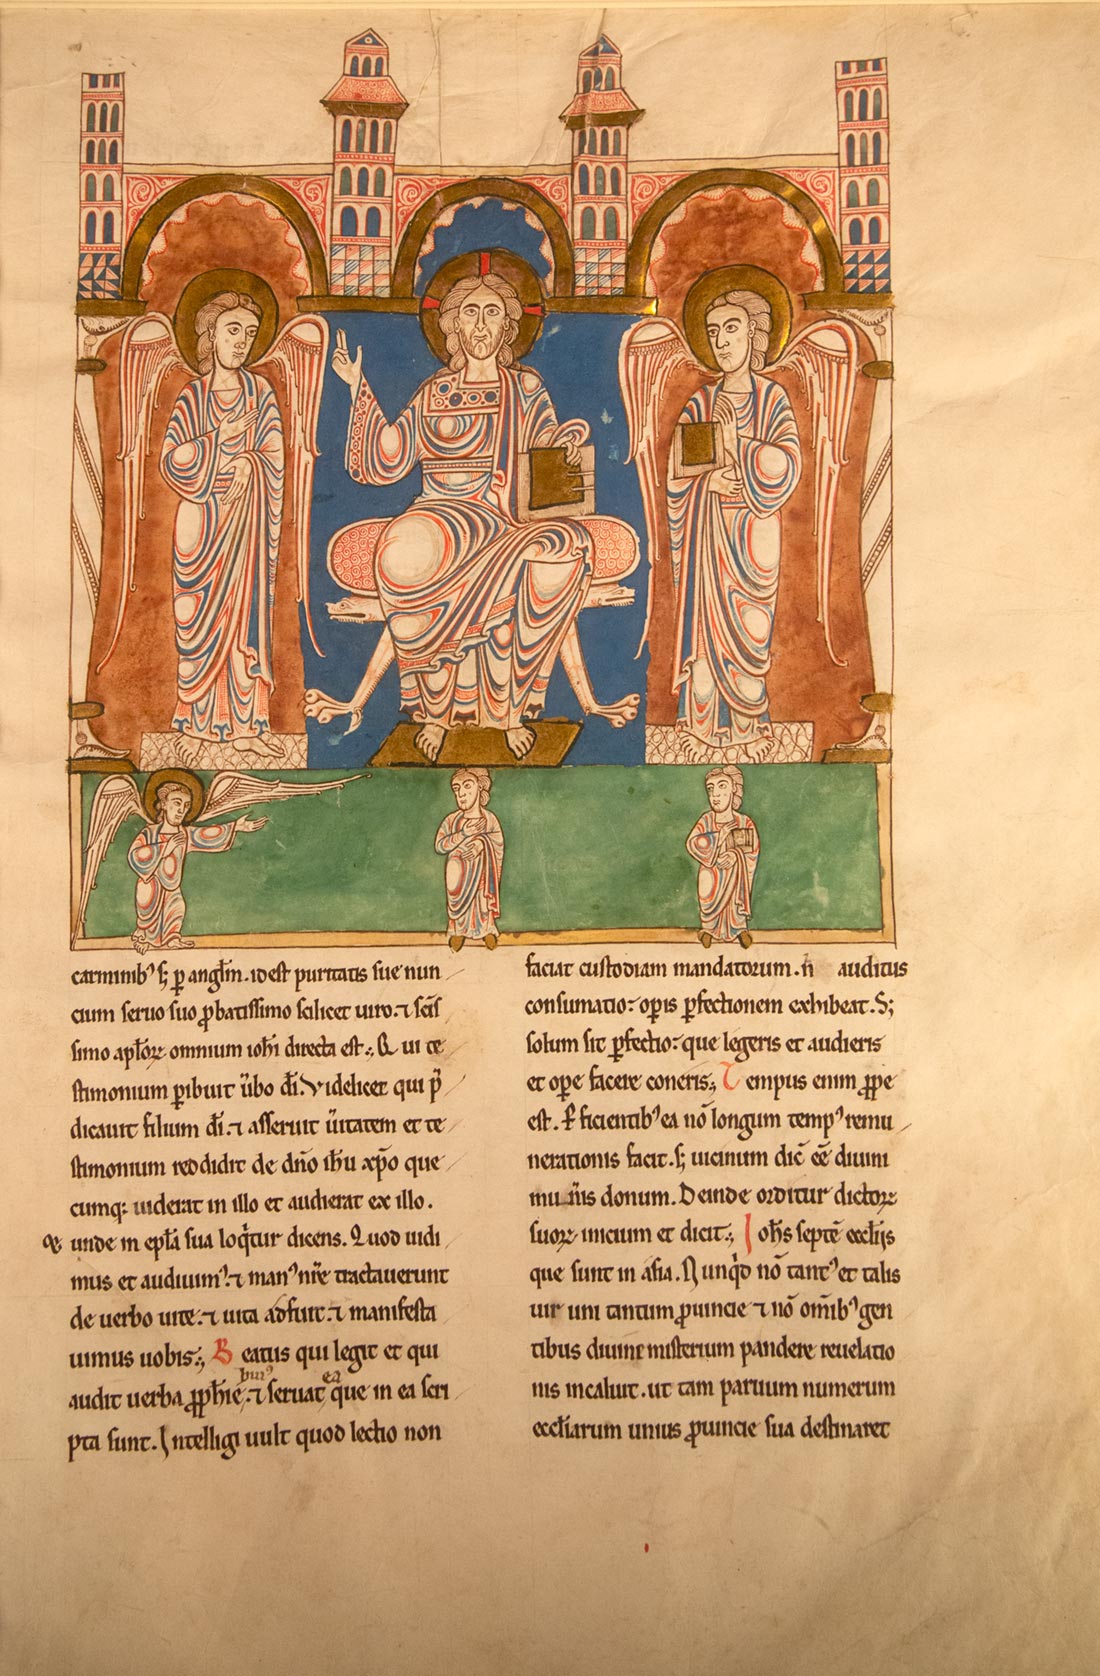 carminib⁹ s; ꝑ angl̄m. idest puritatis sue nun
cium seruo suo ꝓbatissimo scilicet uiro. ⁊ sc̄is
simo apl̄oꝝ omnium ioh̄i directa est:, Qui te
stimonium ꝑibuit ūbo dī. Videlicet qui p̄
dicauit filium dī. ⁊ asseruit ūitatem et te
stimonium reddidit de dn̄o ih̄u xp̄o que
cumq; uiderat in illo et audierat ex illo.
unde in epl̄a sua loqͥtur dicens. Quod uidi
mus et audiuim⁹. ⁊ man⁹ nr̄e tractauerunt
de uerbo uite. ⁊ uita adfuit. ⁊ manifesta
uimus uobis:, Beatus qui legit et qui
audit uerba ꝓph̄ie. ⁊ seruat que in ea scri
pta sunt. Intelligi uult quod lectio non
faciat custodiam mandatorum. n̄ auditus
consumatio: opis ꝑfectionem exhibeat. S;
solum sit ꝑfectio: que legeris et audieris
et opere facere coneris:, Tempus enim ꝓpe
est. Ꝑficientib⁹ ea nō longum temp⁹ remu
nerationis facit. s; uicinum dic̄ ēē diuini
mu nīs donum. Deinde orditur dictoꝝ
suoꝝ inicium et dicit:, Ioh̄s septē eccl̄iis
que sunt in asia. Nunqͥd nō tant⁹ et talis
uir uni tantum ꝓuincie ⁊ nō om̄ib⁹ gen
tibus diuini misterium pandere reuelatio
nis incaluit. ut tam paruum numerum
eccl̄iarum unius ꝓuincie sua destinaret